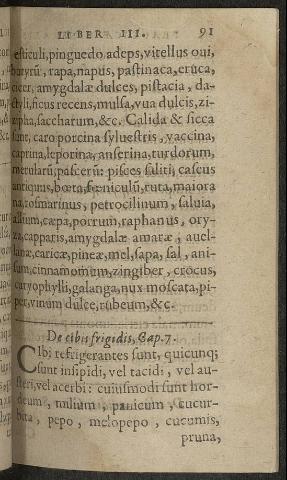 LIBER III. 91
esticuli, pinguedo adeps, vitellus oui,
butyrū, rapa, napus, pastinaca, eruca,
cicer, amygdalæ dulces, pistacia, da-
ctyli, ficus recens, mulsa, vua dulcis, zi-
zipha, saccharum, &c. Calida & sicca
sunt, caro porcina syluestris, vaccina,
caprina, leporina, anserina, turdorum,
merularū, passerū: pisces saliti, caseus
antiquus, bœta, fœniculū, ruta, maiora
na, rosmarinus, petrocilinum, saluia,
allium, cæpa, porrum, raphanus, ory-
za, capparis, amygdalæ amaræ, auel-
lanæ, caricæ, pineæ, mel, sapa, sal, ani-
sum, cinnamomum, zingiber, crocus,
caryophylli, galanga, nux moscata, pi-
per, vinum dulce, rubeum, &c.
De cibis frigidis, Cap. 7.
CIbi refrigerantes sunt, quicunq;
sunt insipidi, vel tacidi, vel au-
steri, vel acerbi: cuiusmodi sunt hor-
deum, milium, panicum, cucur-
bita, pepo, melopepo, cucumis,
pruna,